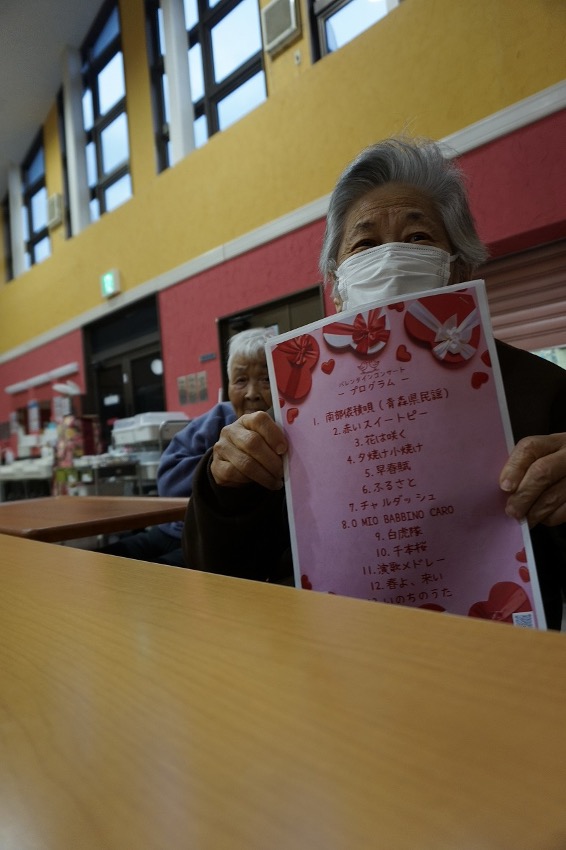 バレンタインコンサート
- プログラム -
1. 南部俵積唄 (青森県民謡)
2. 赤いスイートピー
3. 花は咲く
4. 夕焼け小焼け
5. 早春賦
6. ふるさと
7. チャルダッシュ
8. O MIO BABBINO CARO
9. 白虎隊
10. 千本桜
11. 演歌メドレー
12. 春よ、来い
いのちのうた